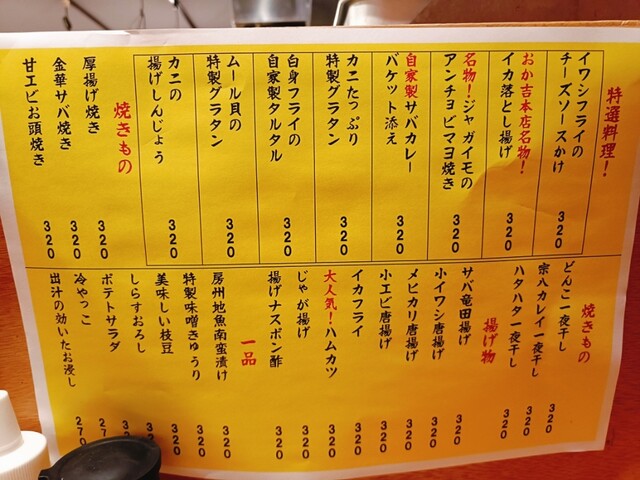 特選料理!
イワシフライの
チーズソースかけ
320
おか吉本店名物!
イカ落とし揚げ
320
名物!ジャガイモの
アンチョビマヨ焼き
320
自家製サバカレー
バケット添え
320
カニたっぷり
特製グラタン
320
白身フライの
自家製タルタル
320
ムール貝の
特製グラタン
320
カニの
揚げしんじょう
320
焼きもの
厚揚げ焼き 320
金華サバ焼き 320
甘エビお頭焼き 320
焼きもの
どんこ一夜干し 320
宗八カレイ一夜干し 320
ハタハタ一夜干し 320
揚げ物
サバ竜田揚げ 320
小イワシ唐揚げ 320
メヒカリ唐揚げ 320
小エビ唐揚げ 320
イカフライ 320
大人気!ハムカツ 320
じゃが揚げ 320
揚げナスポン酢 320
一品
房州地魚南蛮漬け 320
特製味噌きゅうり 320
美味しい枝豆 320
しらすおろし 32
ポテトサラダ 32
冷やっこ 270
出汁の効いたお浸し 270